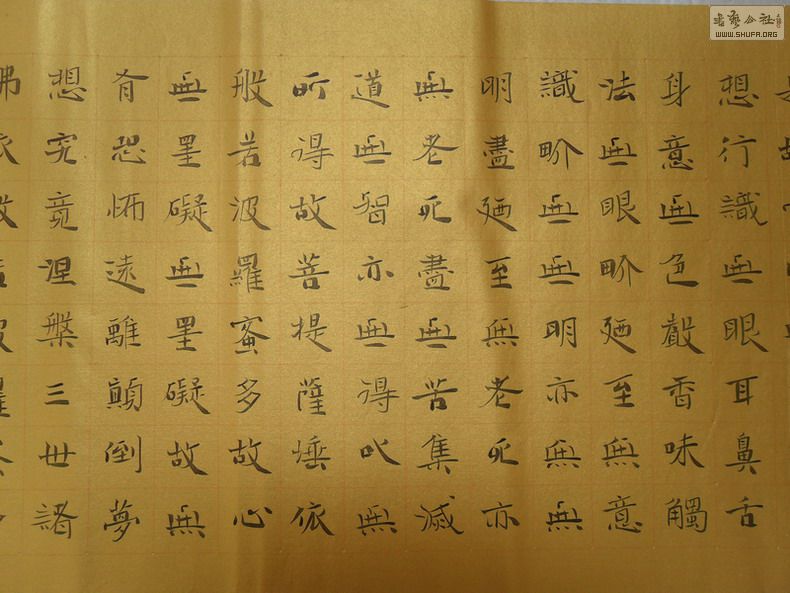 想行識無眼耳鼻舌
身意無色聲香味觸
法無眼界廼至無意
識界無無明亦無無
明盡廼至無老死亦
無老死盡無苦集滅
道無智亦無得以無
所得故菩提薩埵依
般若波羅蜜多故心
無罣礙無罣礙故無
有恐怖遠離顛倒夢
想究竟涅槃三世諸
書藝公社
WWW.SHUFA.ORG